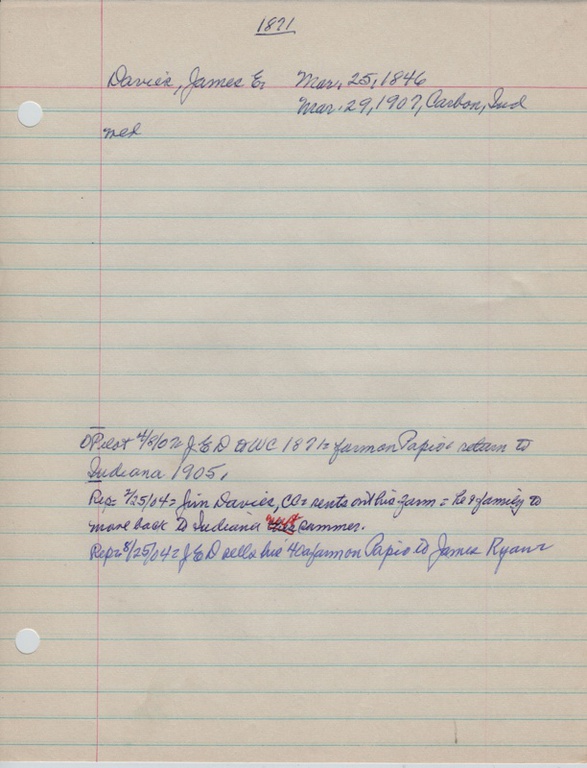 1871
Davies, James E. Mar. 25, 1846
Mar. 29, 1907, Carbon, Ind
med
Pilot 4/8/07= J E D to WC 1871= farm on Papio= return to
Indiana 1905.
Rep= 7/25/04= Jim Davies, CO= rents out his farm = he & family to
move back to Indiana next summer.
Rep= 8/25/04= J E D sells his 40a farm on Papio to James Ryan=